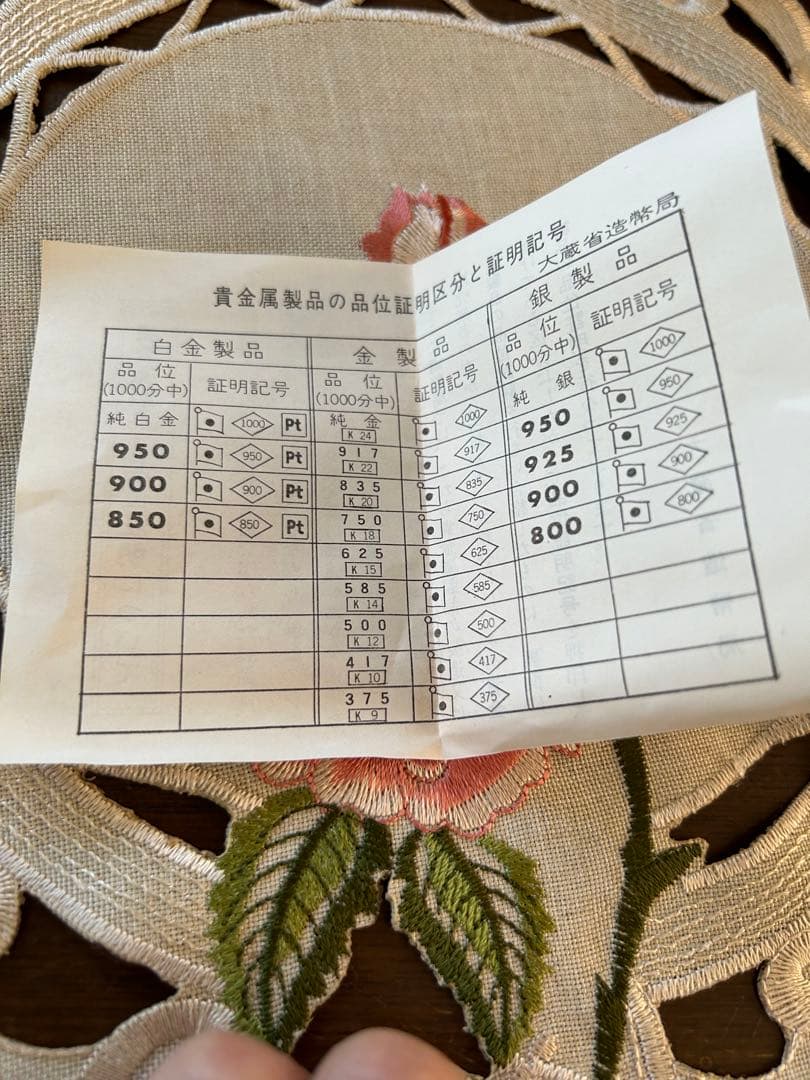 貴金属製品の品位証明区分と証明記号
大蔵省造幣局
白金製品 金製品 銀製品
品位(1000分中) 証明記号 品位(1000分中) 証明記号 品位(1000分中) 証明記号
純白金 1000 Pt 純金 K 24 1000 純銀 1000
950 950 Pt 917 K 22 917 950 950
900 900 Pt 835 K 20 835 925 925
850 850 Pt 750 K 18 750 900 900
625 K 15 625 800 800
585 K 14 585
500 K 12 500
417 K 10 417
375 K 9 375